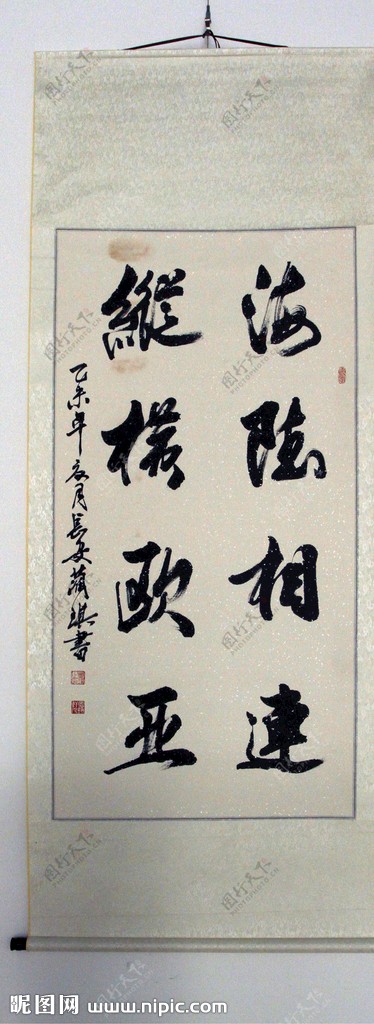 海陸相連
縱橫歐亞
乙未年六月長安蒲琪書
昵图网 www.nipic.com
图行天下
PHOTOPHOTO.CN